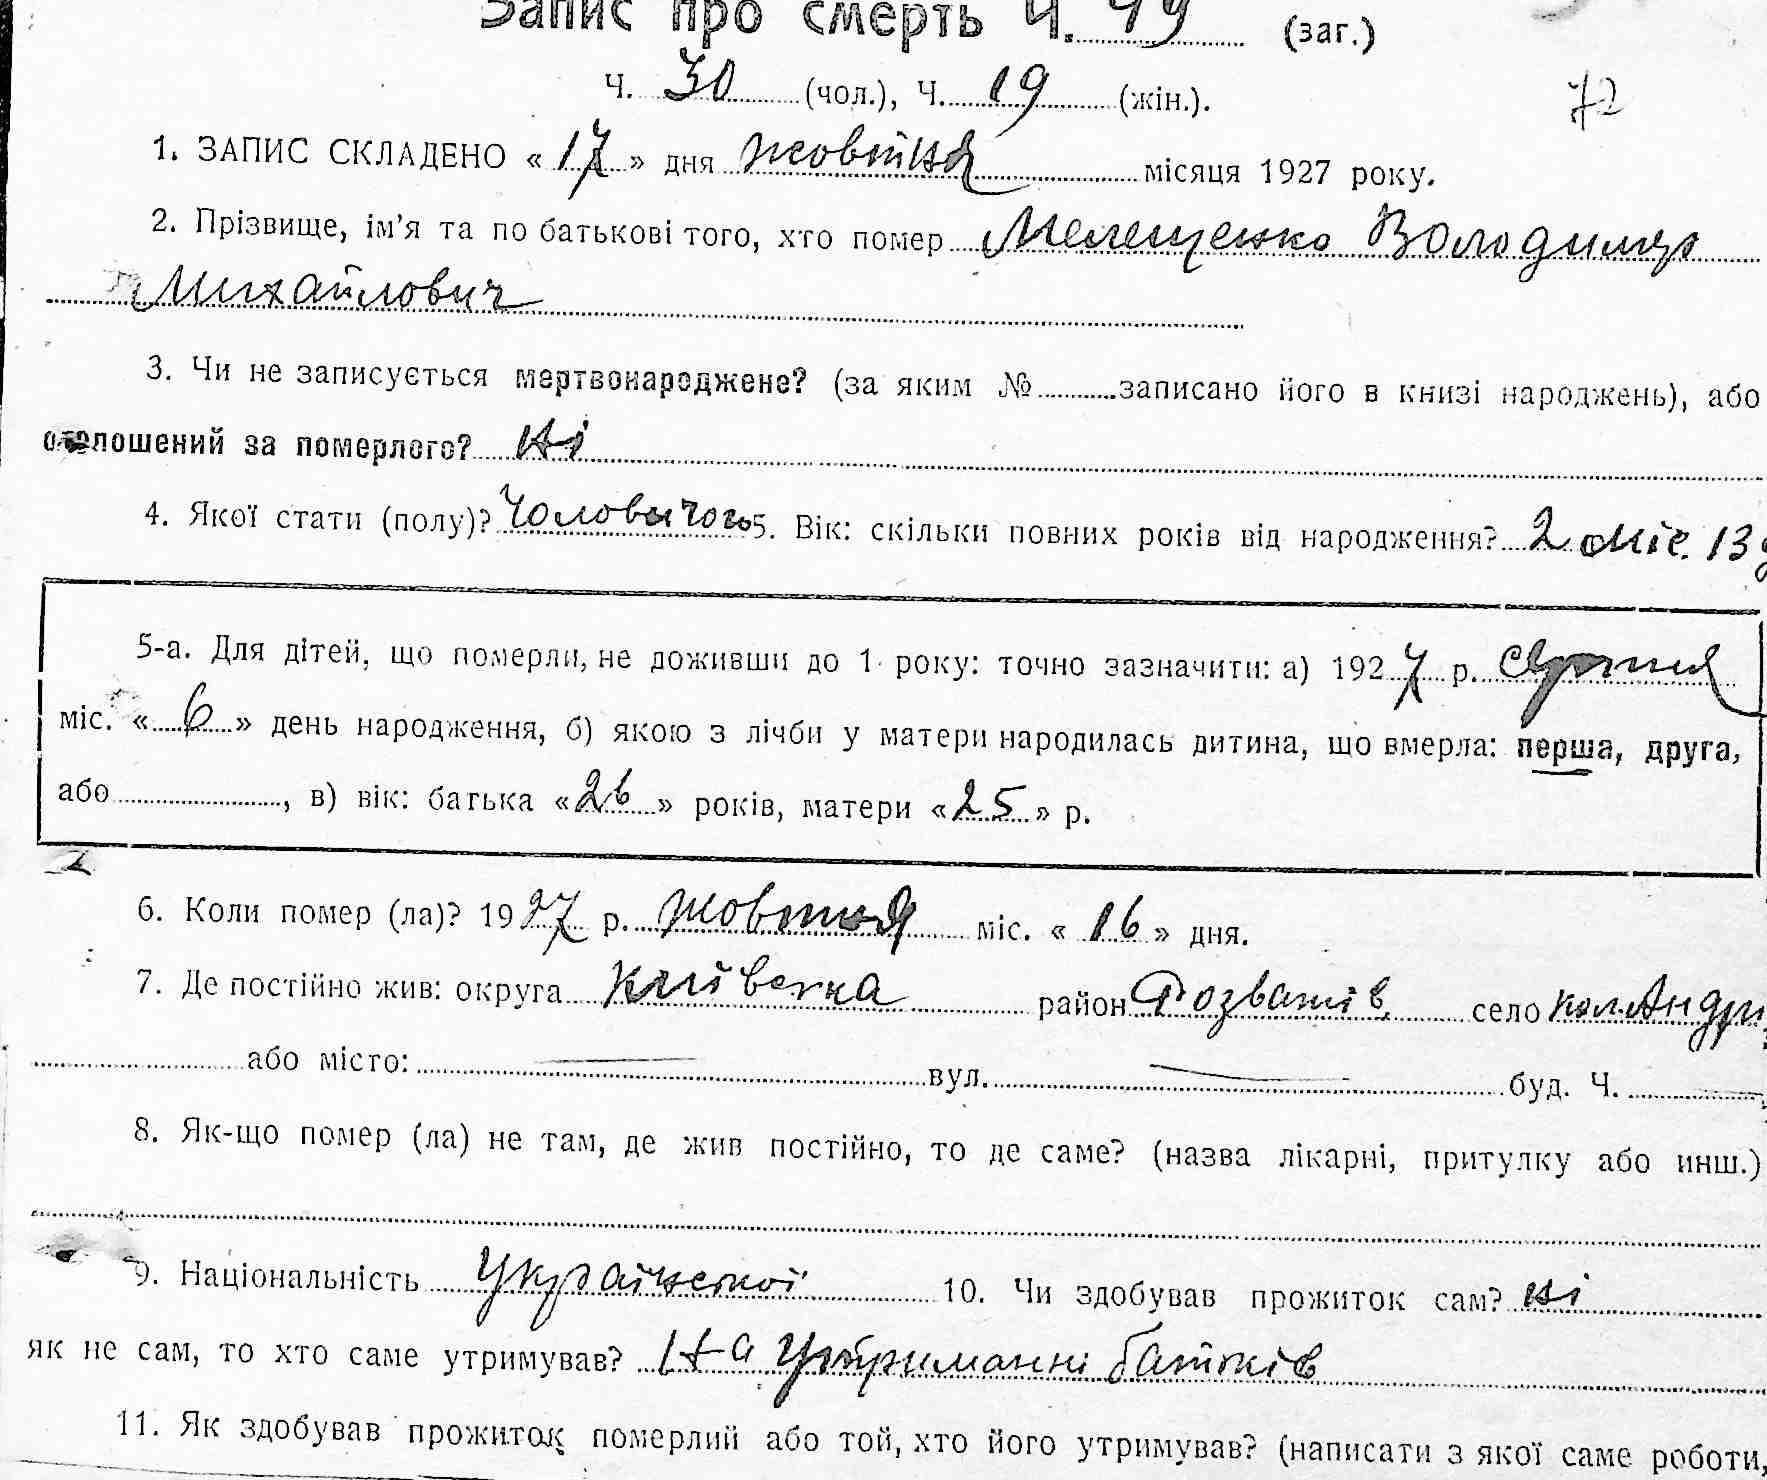 Запис про смерть Ч. 49 (заг.)
Ч. 30 (чол.), Ч. 19 (жін.).
72
1. ЗАПИС СКЛАДЕНО « 17 » дня жовтня місяця 1927 року.
2. Прізвище, ім’я та по батькові того, хто помер Мелещенко Володимир
Михайлович
3. Чи не записується мертвонароджене? (за яким № записано його в книзі народжень), або
оголошений за померлого? ні
4. Якої стати (полу)? Чоловічого 5. Вік: скільки повних років від народження? 2 міс. 13
5-а. Для дітей, що померли, не доживши до 1 року: точно зазначити: а) 1927 р. Серпня
міс. « 6 » день народження, б) якою з лічби у матери народилась дитина, що вмерла: перша, друга,
або , в) вік: батька « 26 » років, матери « 25 » р.
6. Коли помер (ла)? 1927 р. жовтня міс. « 16 » дня.
7. Де постійно жив: округа Київська район Розважів село кол. Андри
або місто: вул. буд. Ч.
8. Як-що помер (ла) не там, де жив постійно, то де саме? (назва лікарні, притулку або инш.)
9. Національність Української 10. Чи здобував прожиток сам? ні
як не сам, то хто саме утримував? На утриманні батьків
11. Як здобував прожиток померлий або той, хто його утримував? (написати з якої саме роботи,